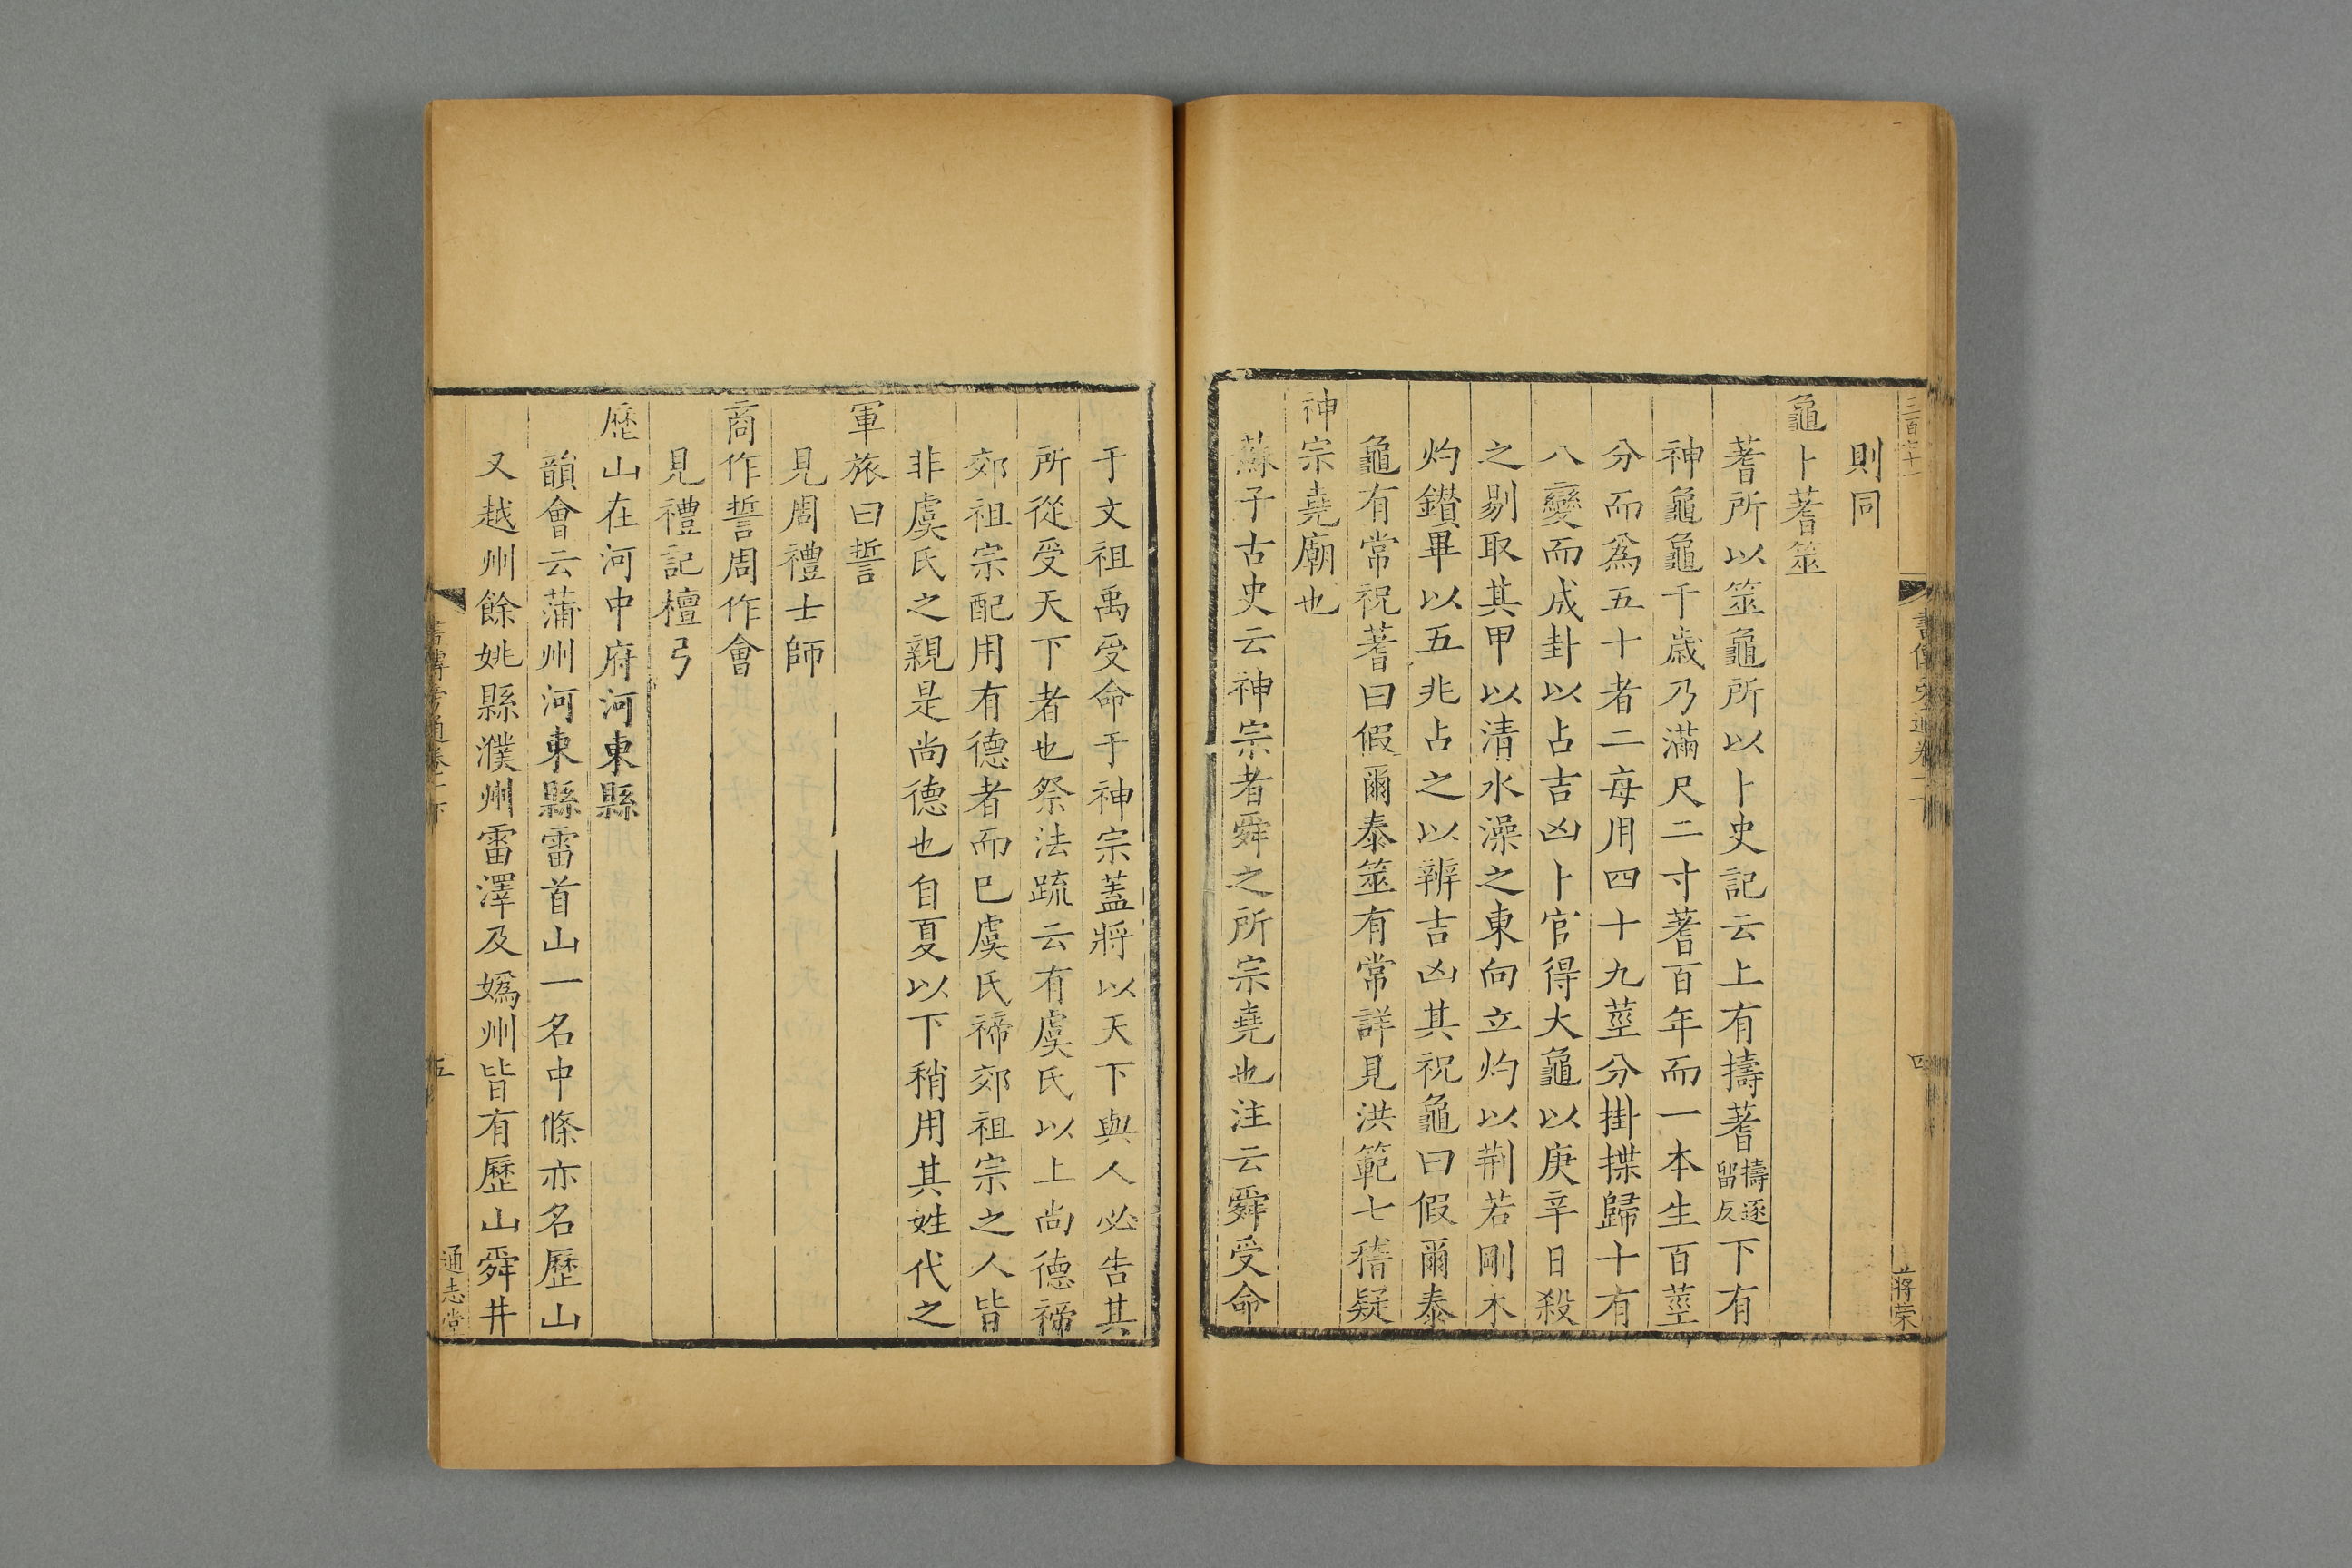 則同
龜卜蓍筮
蓍所以筮龜所以卜史記云上有擣蓍擣逐留反下有
神龜龜千歲乃滿尺二寸蓍百年而一本生百莖
分而爲五十者二每用四十九莖分掛揲歸十有
八變而成卦以占吉凶卜官得大龜以庚辛日殺
之剔取其甲以清水澡之東向立灼以荆若剛木
灼鑚畢以五兆占之以辨吉凶其祝龜曰假爾泰
龜有常祝蓍曰假爾泰筮有常詳見洪範七稽疑
神宗堯廟也
蘇子古史云神宗者舜之所宗堯也注云舜受命
四
于文祖禹受命于神宗蓋將以天下與人必告其
所從受天下者也祭法疏云有虞氏以上尚德禘
郊祖宗配用有德者而巳虞氏禘郊祖宗之人皆
非虞氏之親是尚德也自夏以下稍用其姓代之
軍旅曰誓
見周禮士師
商作誓周作會
見禮記檀弓
歷山在河中府河東縣
韻會云蒲州河東縣雷首山一名中條亦名歷山
又越州餘姚縣濮州雷澤及嬀州皆有歷山舜井
五
通志堂